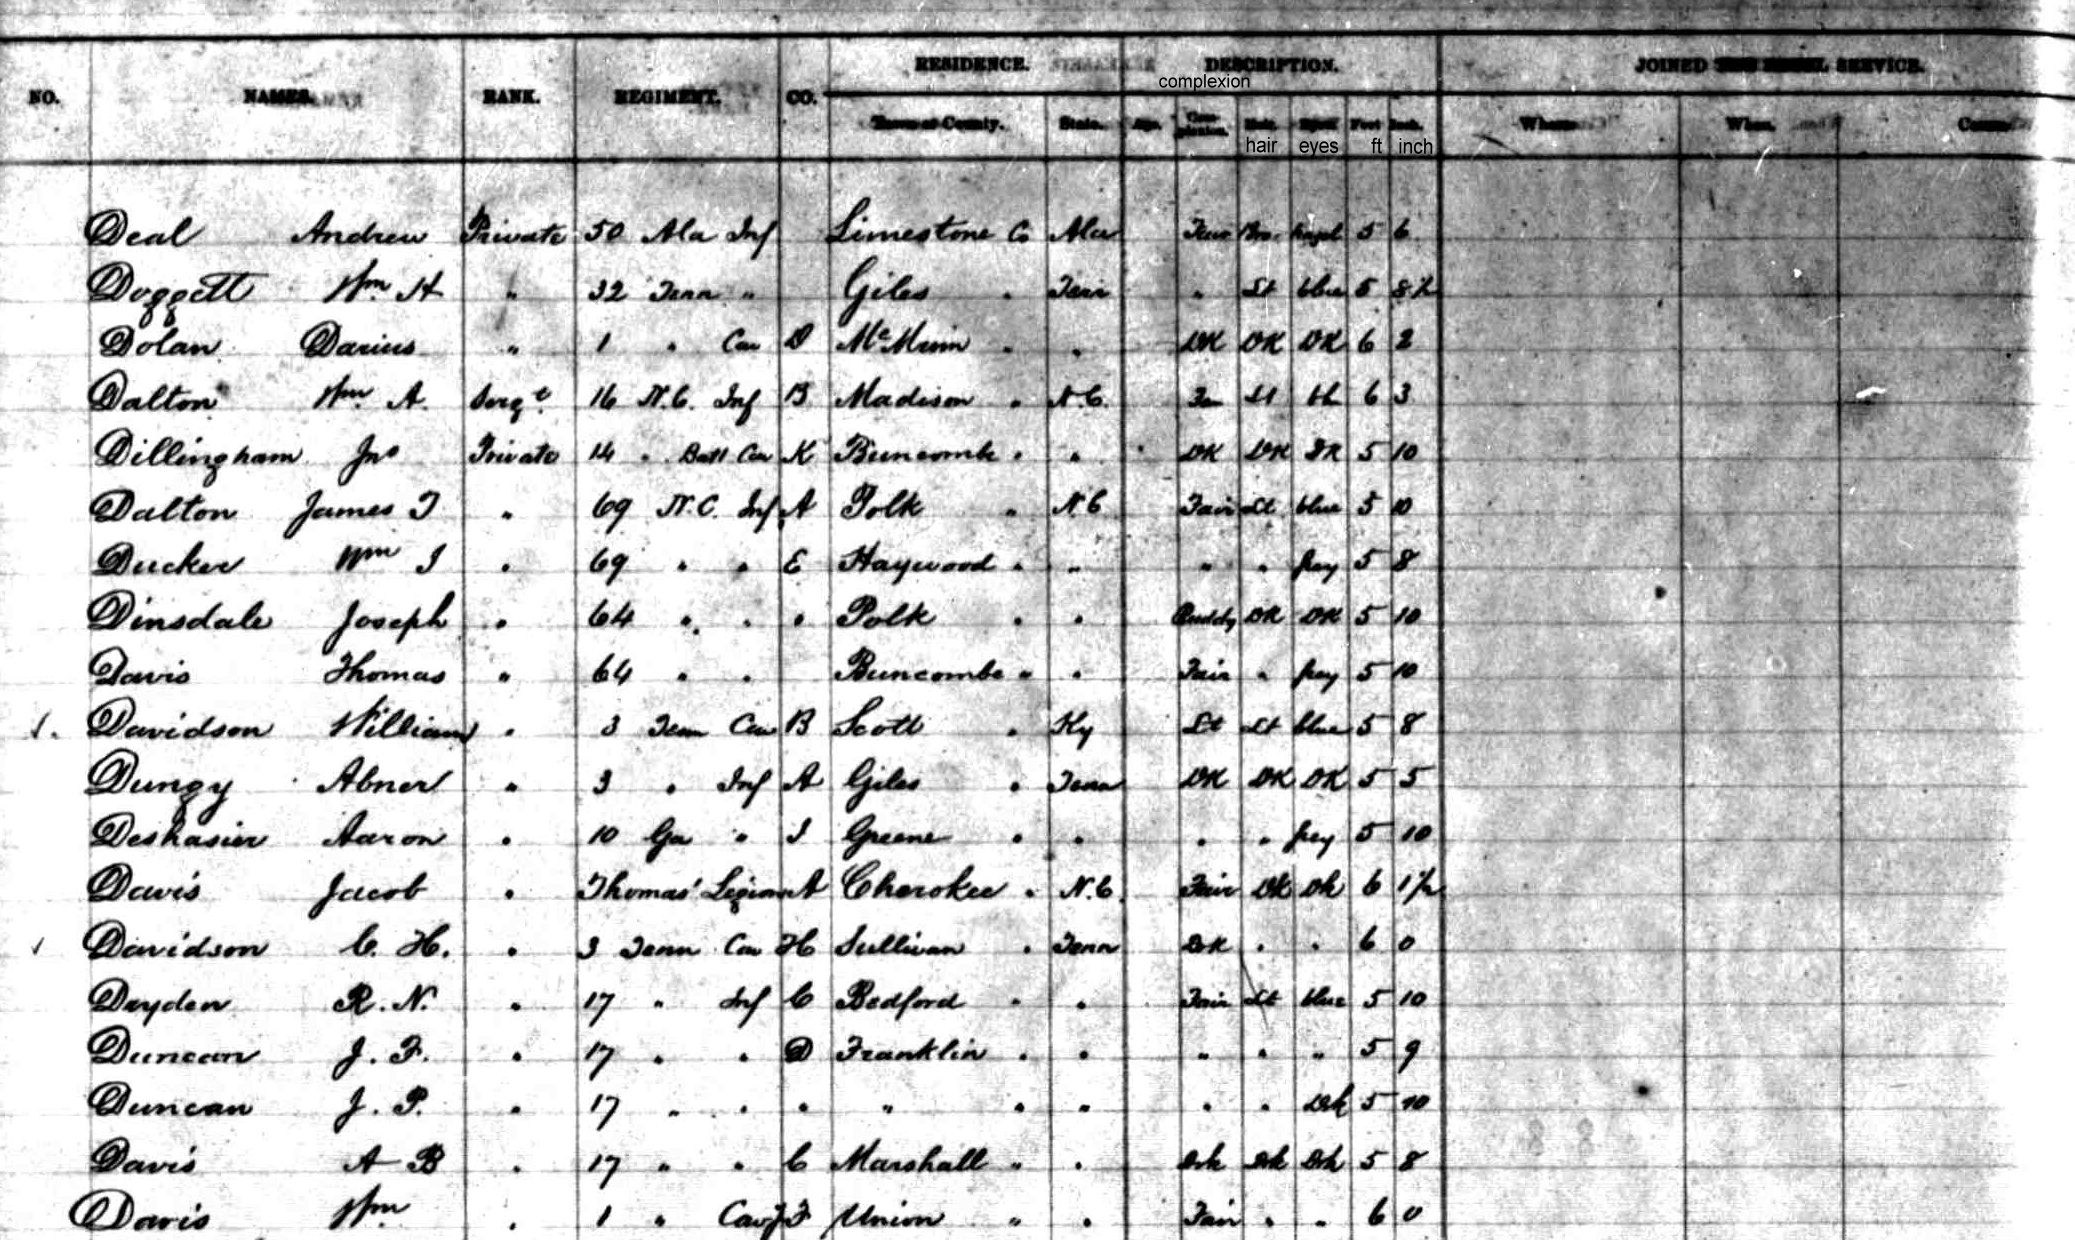 RESIDENCE. DESCRIPTION. JOINED SERVICE.
complexion
NO. NAMES. RANK. REGIMENT. CO.
Town or County. State. Age. Com-plexion. Hair. Eyes. Feet Inch. Where When.
hair eyes ft inch
Deal Andrew Private 50 Ala Inf Limestone Co Ala Fair Bro. hazel 5 6
Doggett Wm H " 32 Tenn " Giles " Tenn " Lt blue 5 8½
Dolan Darius " 1 " Cav D McMinn " " DK DK DK 6 2
Dalton Wm A. Sergt. 16 N.C. Inf B Madison " N.C. Lt 6 3
Dillingham Jno Private 14 " Batt Cav K Buncombe " " DK DK DK 5 10
Dalton James T " 69 N.C. Inf A Polk " N.C Fair Lt blue 5 10
Ducker Wm J " 69 " " E Haywood " " " " grey 5 8
Dinsdale Joseph " 64 " " " Polk " " Ruddy DK DK 5 10
Davis Thomas " 64 " " Buncombe " " Fair " grey 5 10
Davidson William " 3 Tenn Cav B Scott " Ky Lt Lt blue 5 8
Dungy Abner " 3 " Inf A Giles " Tenn DK DK DK 5 5
Deshasier Aaron " 10 Ga " I Greene " " " " grey 5 10
Davis Jacob " Thomas' Legion A Cherokee " N.C. Fair Dk Dk 6 1½
Davidson C. H. " 3 Tenn Cav H Sullivan " Tenn DK " " 6 0
Dryden R. N. " 17 " Inf C Bedford " " Fair Lt blue 5 10
Duncan J. F. " 17 " " D Franklin " " " " " 5 9
Duncan J. P. " 17 " " " " " " " " Drk 5 10
Davis A B " 17 " " C Marshall " " Drk Drk Drk 5 8
Davis Wm " 1 " Cav F Union " " Fair " " 6 0